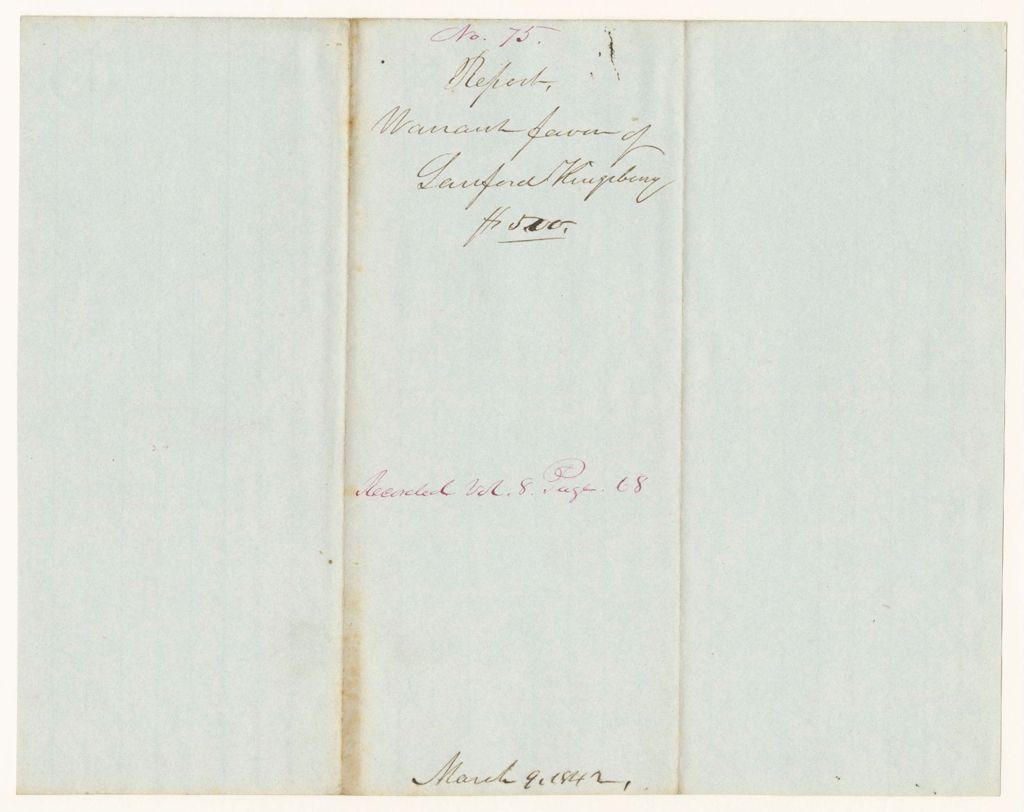 No. 75.
Report,
Warrant favor of
Sanford Kingsbury
$500.
Recorded Vol. 8. Page. 68
March 9. 1842,